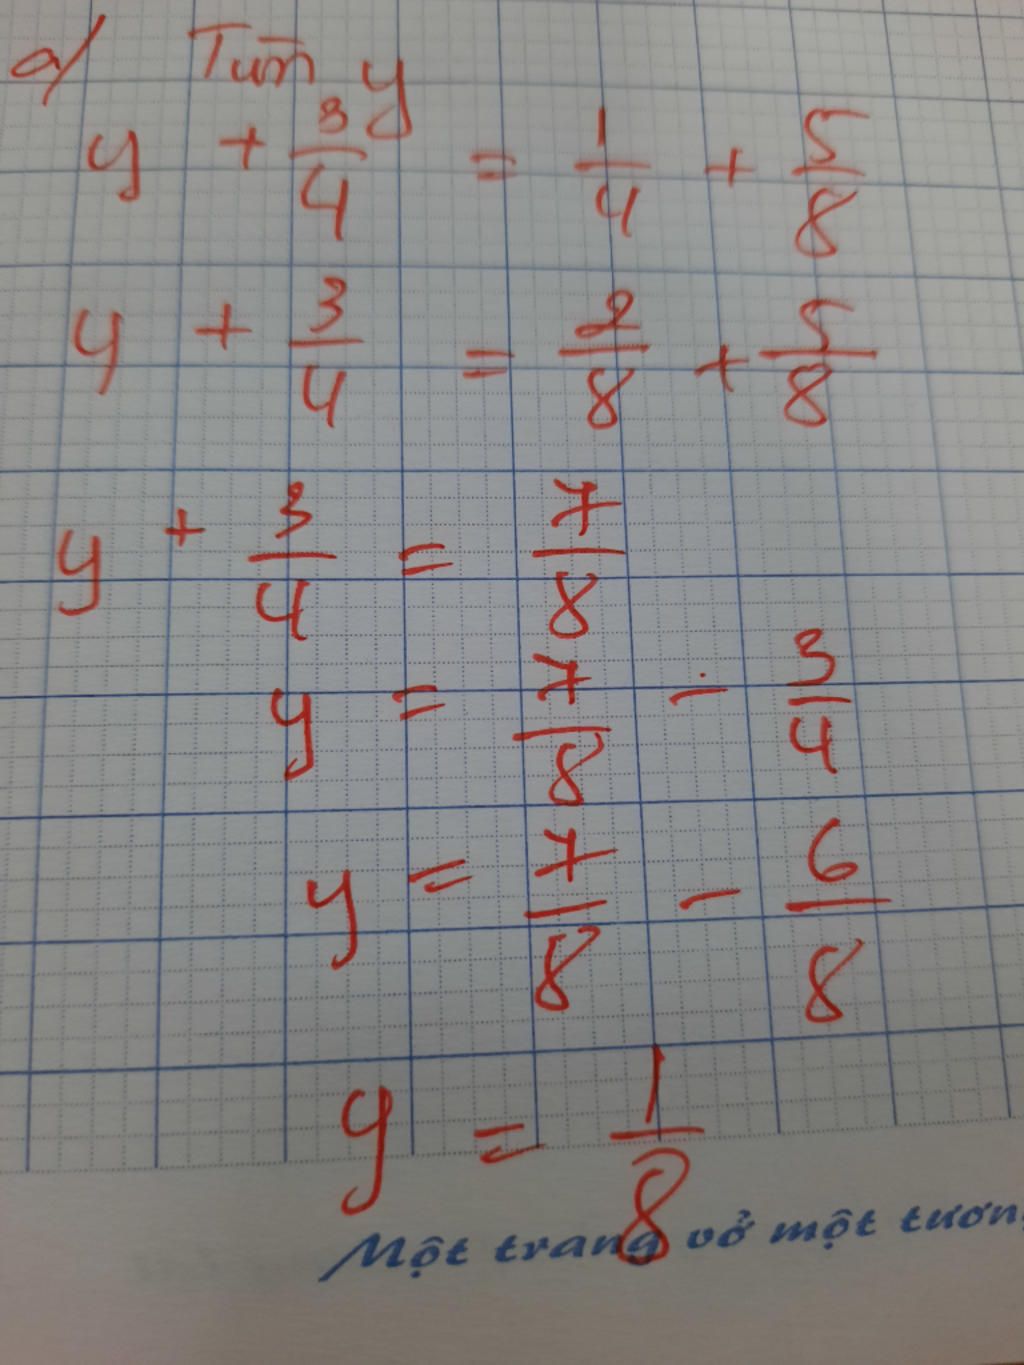 a/ Tìm y
y + 3/4 = 1/4 + 5/8
y + 3/4 = 2/8 + 5/8
y + 3/4 = 7/8
y = 7/8 - 3/4
y = 7/8 - 6/8
y = 1/8
Một trang vở một tương